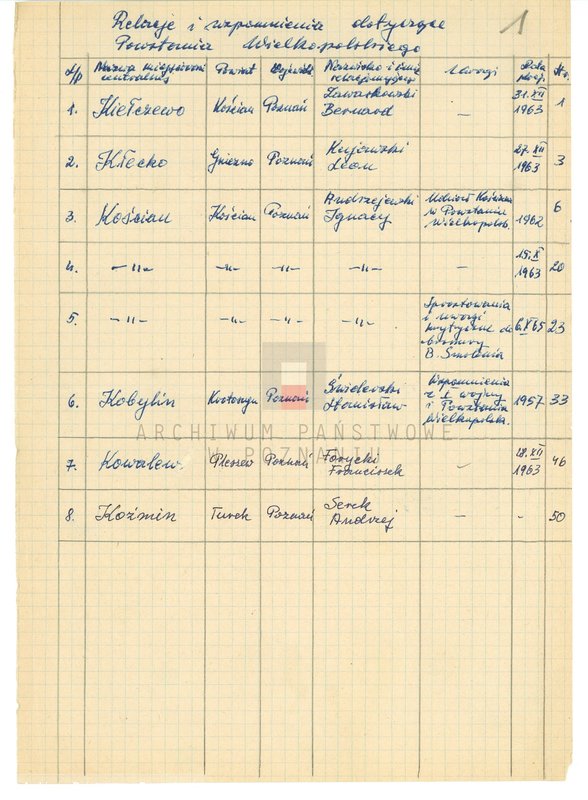 1
Relacje i wspomnienia dotyczące
Powstania Wielkopolskiego
L/p Nazwa miejscowości Powiat Wojewódz. Nazwisko i imię Uwagi Data Str.
centralnej relacjonującego
1. Kiełczewo Kościan Poznań Ławaskowski Bernard — 31.XII 1963 1
2. Kłecko Gniezno Poznań Kujawski Leon 27.XII 1963 3
3. Kościan Kościan Poznań Andrzejewski Ignacy Udział Kościana w Powstaniu Wielkopolsk. 1962 6
4. —"— —"— —"— —"— — 15.X 1963 20
5. —"— —"— —"— —"— Sprostowania i uwagi krytyczne do broszury B. 6.XI 65 23
6. Kobylin Krotoszyn Poznań Stanisław Wspomnienia z I wojny i Powstania Wielkopolsk. 1957 33
7. Kowalew. Pleszew Poznań Forycki Franciszek — 28.XII 1963 46
8. Koźmin Turek Poznań Serek Andrzej — - 50
ARCHIWUM PAŃSTWOWE
W POZNANIU